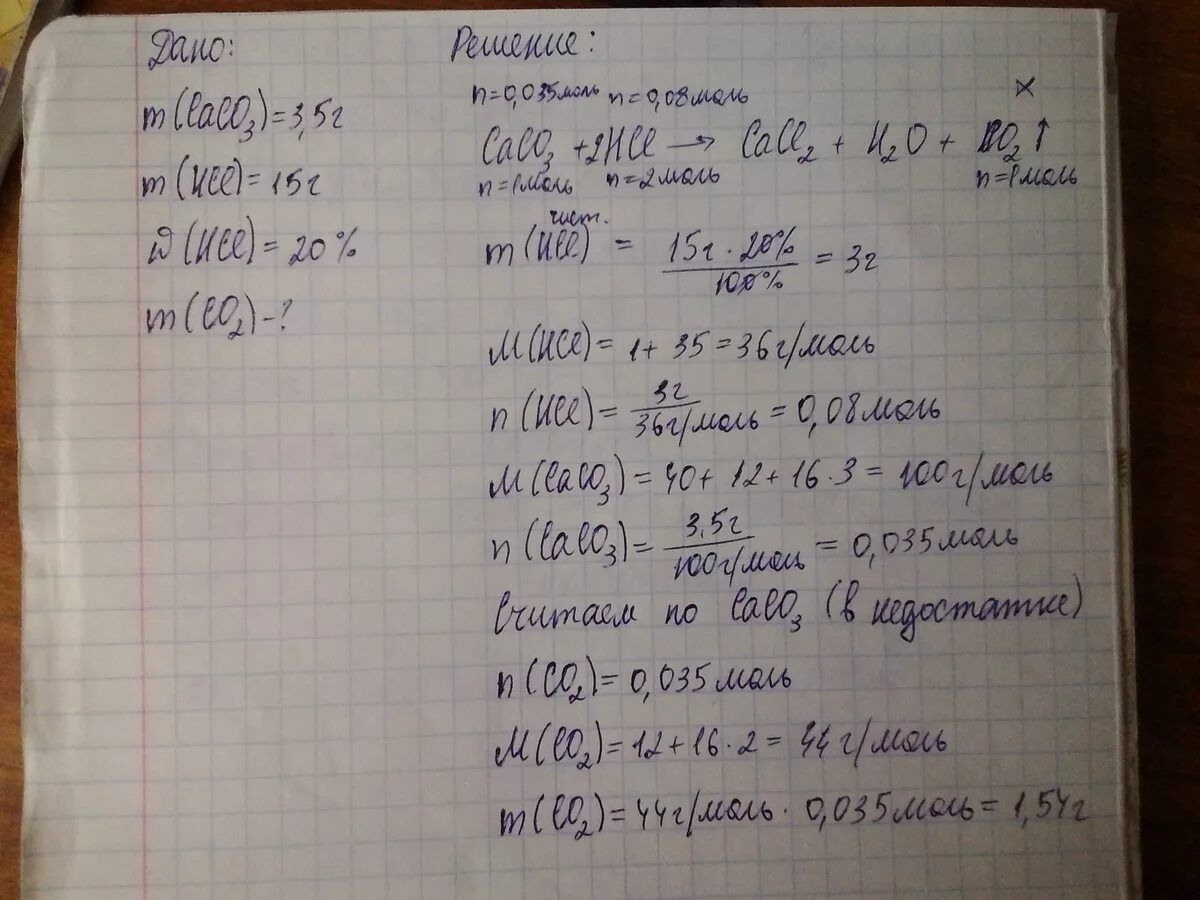 Дано:
m(CaCO₃)=3,5г
m(HCl)=15г
ω(HCl)=20%
m(CO₂)-?
Решение:
n=0,035моль n=0,08моль x
CaCO₃ + 2HCl → CaCl₂ + H₂O + CO₂↑
n=1моль n=2моль n=1моль
чист.
m(HCl) = 15г · 20% / 100% = 3г
M(HCl) = 1+35=36г/моль
n(HCl) = 3г / 36г/моль = 0,08моль
M(CaCO₃) = 40+12+16·3 = 100г/моль
n(CaCO₃) = 3,5г / 100г/моль = 0,035моль
Считаем по CaCO₃ (в недостатке)
n(CO₂) = 0,035моль
M(CO₂) = 12+16·2 = 44г/моль
m(CO₂) = 44г/моль · 0,035моль = 1,54г